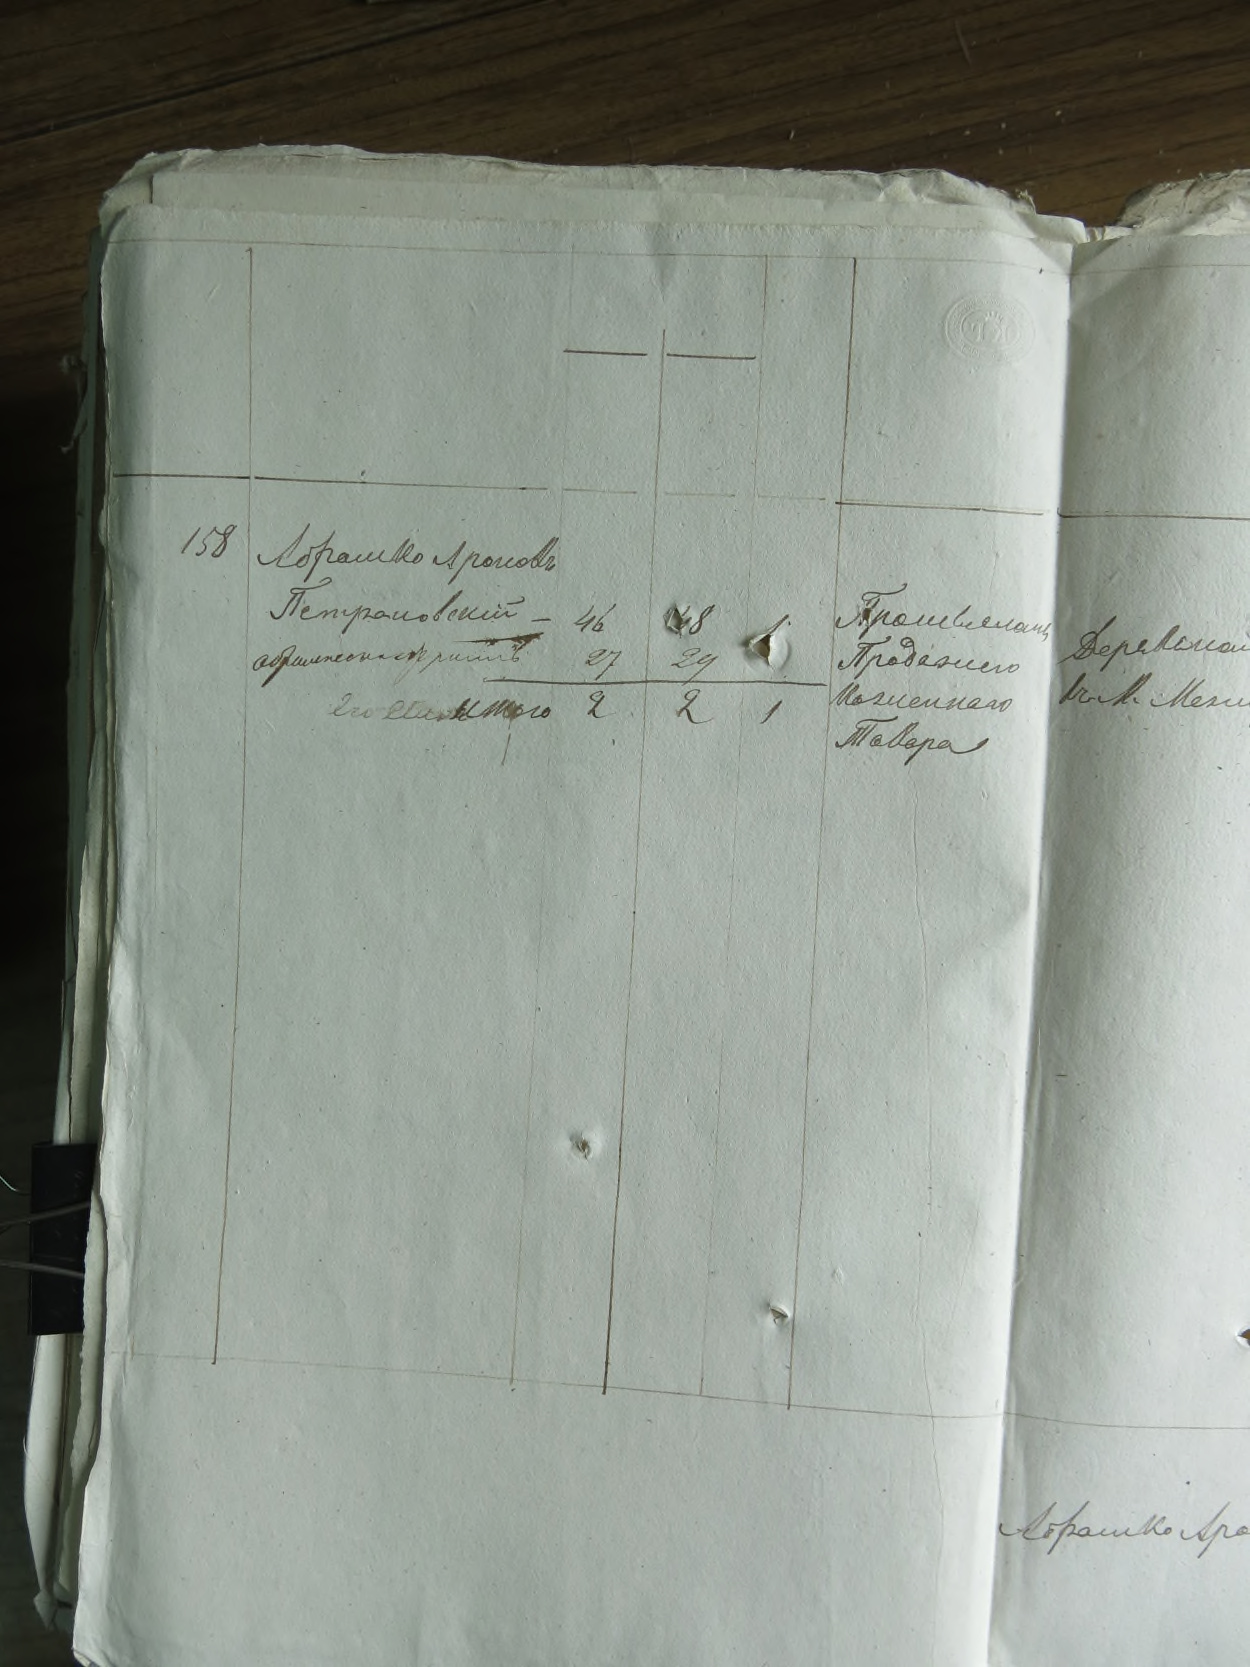 158 Абрашко Ароновъ
Петрановский — 46 48 1 Промышляетъ
27 29 Продажею
Итого 2 2 1 кожженнаго
Товара
Деревянном
въ М.
Абрашко Аро